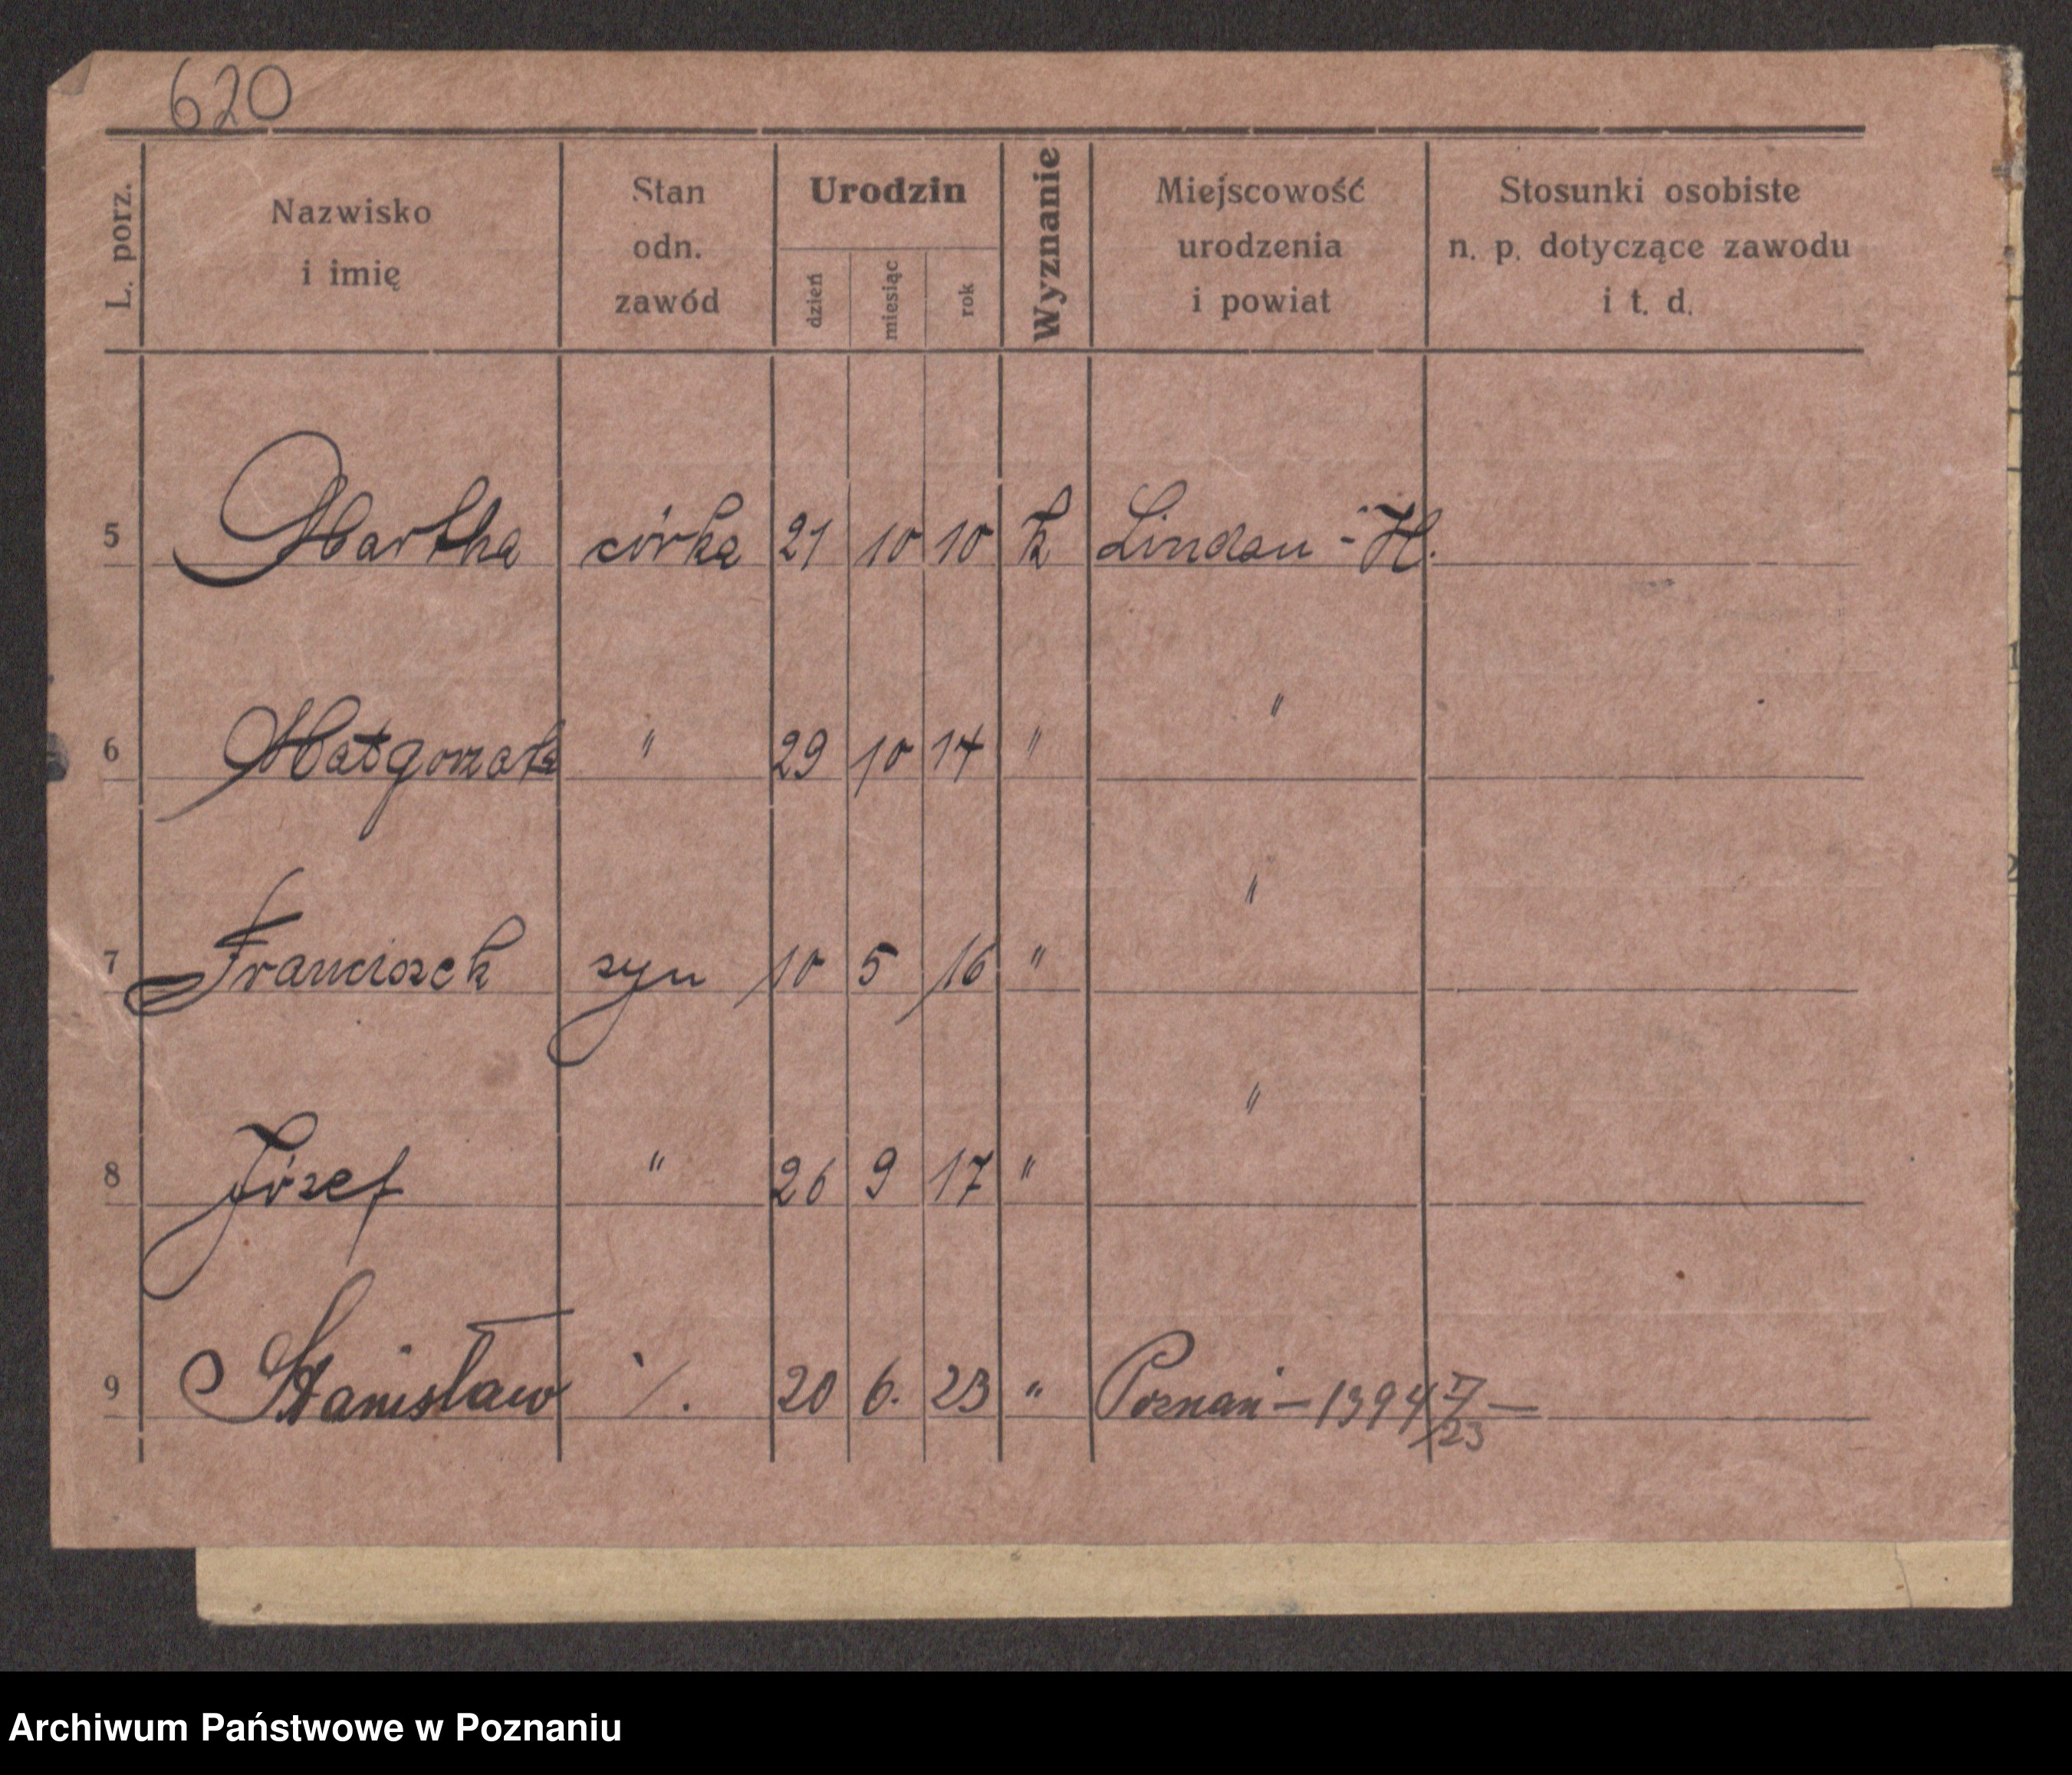 620
L. porz. Nazwisko i imię Stan odn. zawód Urodzin dzień miesiąc rok Wyznanie Miejscowość urodzenia i powiat Stosunki osobiste n. p. dotyczące zawodu i t. d.
5 Martha córka 21 10 10 k Lindau - H.
6 Małgorzata " 29 10 14 " "
7 Franciszek syn 10 5 16 " "
8 Józef " 26 9 17 " "
9 Stanisław ·/. 20 6. 23 " Poznań - 1394 /23 -
Archiwum Państwowe w Poznaniu